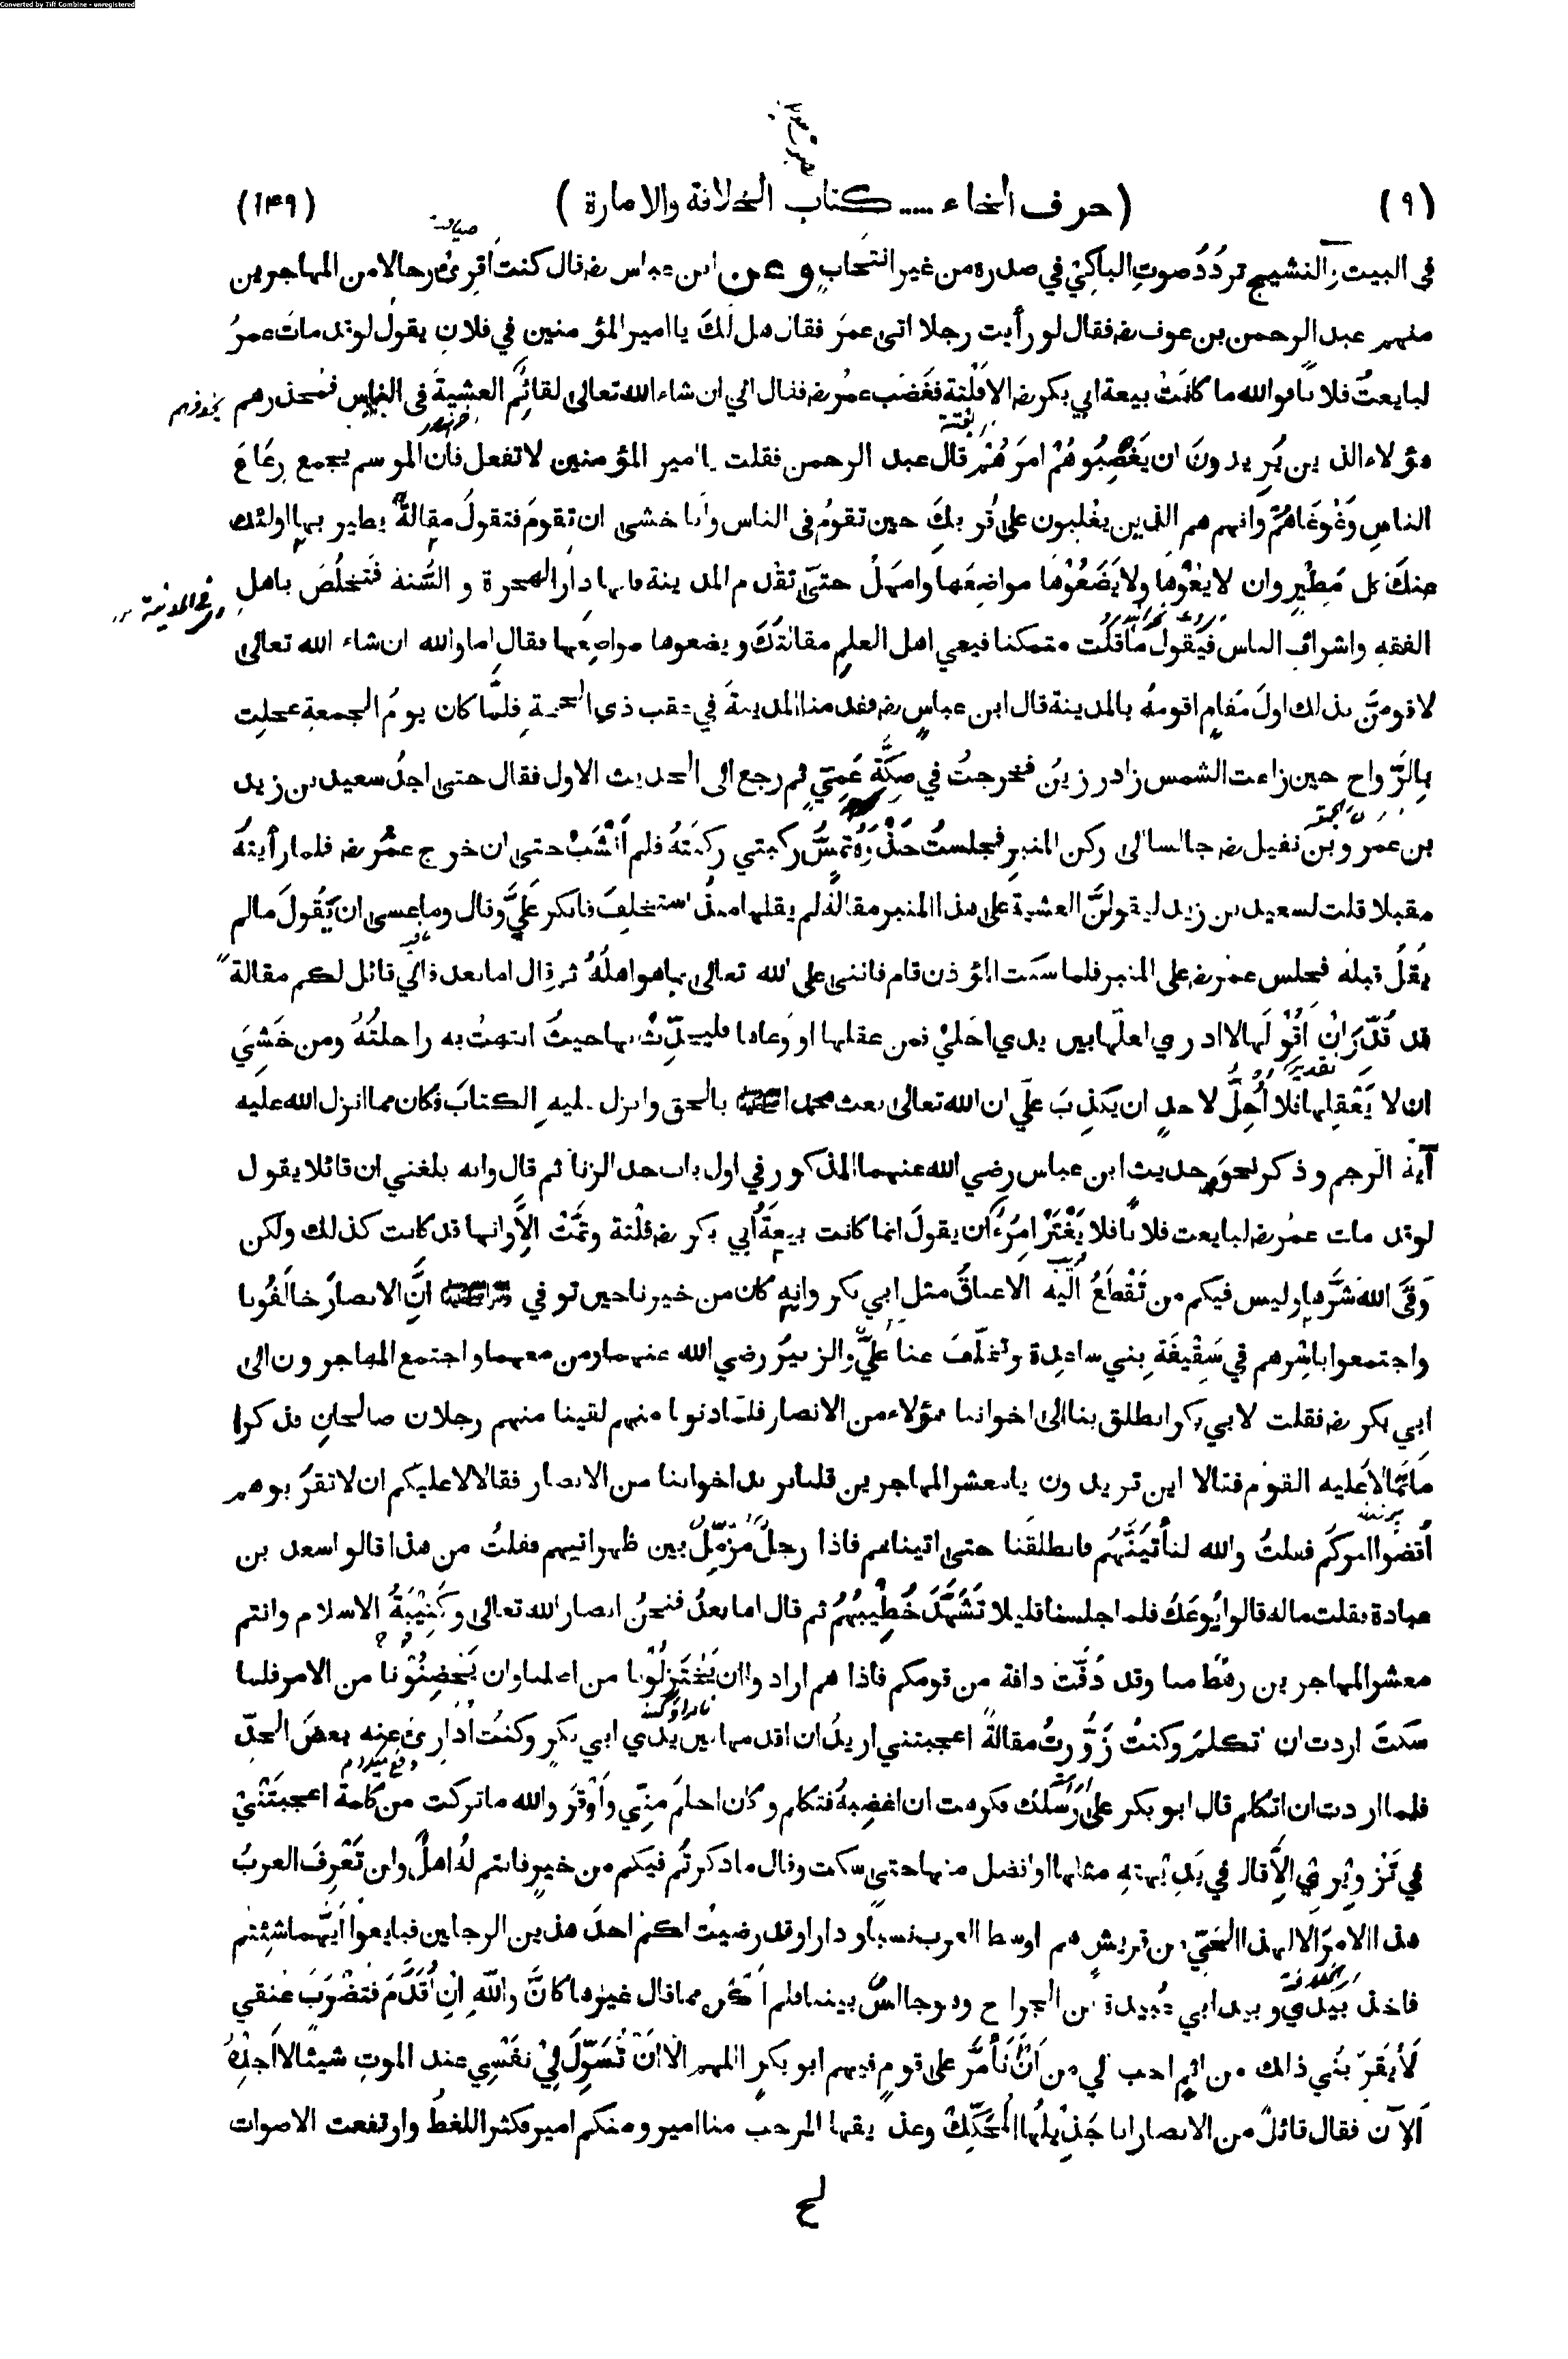 Converted by Tiff Combine - unregistered
(٩) (حرف الخاء ..... كتاب الخلافة والامارة) (١٤٩)
فى البيت والنشيج تردُدُ صوتِ الباكِيْ في صدره من غير انتحابٍ وعن ابن عباس رضـ قال كنت اُقرِئُ رجالا من المهاجرين
منهم عبد الرحمن بن عوف رضـ فقال لو رأيت رجلا اتى عمرَ فقال هل لكَ يا امير المؤمنين في فلان يقول لو قد مات عمرُ
لبايعتُ فلانا فوالله ما كانَتْ بيعة ابي بكر رضـ الا فَلْتة فغَضَب عمرُ رضـ فقال اني ان شاء الله تعالى لقائِمٌ العشيةَ فى الناس فمحذرهم
هؤلاء الذين يُرِيدونَ ان يَغْصِبُوهُمْ امرَهُمْ قال عبد الرحمن فقلت يا امير المؤمنين لا تفعل فان الموسم يجمع رعَاعَ
الناسِ وَغَوغَاهُمْ وانهم هم الذين يغْلِبون على قُربِكَ حين تقومُ فى الناس وأنا خشى ان تقومَ فتقولَ مقالةً يطير بها اولئك
عنكَ كل مُطِيرٍ وان لا يَعُوها ولا يَضَعُوْها مواضِعَها وامهِلْ حتىّ تقْدم المدينة فانها دار الهجرة و السُّنة فَتَخلُصَ باهلِ
الفقهِ واشرافِ الناس فَيَقولَ ما قلت متمكنا فيعي اهل العلمِ مقالتَكَ ويضعوها مواضِعَها فقال اما والله ان شاء الله تعالى
لاقومَنَّ بذلك اولَ مَقامٍ اقومهُ بالمدينة قال ابن عباسٍ رضـ فقدمنا المدينةَ في عقب ذي الحجة فلمَّا كان يومُ الجمعةِ عجلت
بِالرَّواحِ حين زاغت الشمس زاد رزينٌ فخرجتُ في صِكَّةِ عُمِيّ ثم رجع الى الحديث الاول فقال حتى اجدُ سعيد بن زيد
بن عمرو بن نفيل رضـ جالسا الى ركن المنبرِ فجلستُ حَذْوَهُ تمَسُّ ركبتي ركبَتَهُ فلم اَنْشَبْ حتى ان خرج عمُر رضـ فلما رأيتهُ
مقبلا قلت لسعيد بن زيد ليقولنَّ العشية على هذا المنبر مقالةً لم يقلها منذُ استخلِفَ فانكر عَلَيَّ وقال وما عسى ان يَّقُولَ مالم
يَقلُ قبلَه فجلس عمر رضـ على المنبر فلما سكت المؤذن قام فاثنى على الله تعالى بما هو اهلُهُ ثم قال اما بعد فاني قائل لكم مقالة
قد قُدِّرَ اَنْ اَقُوْلَها لا ادري لعلَّها بين يدي اجَليْ فمن عقلها او وَعاها فليحدِّثْ بها حيثُ انتهتْ به راحلتُهُ ومن خَشِيَ
ان لا يَعْقِلَها فلا اُحِلُّ لاحدٍ ان يكذِبَ عليَّ ان الله تعالى بعث محمدا بالحق وانزل عليهِ الكتابَ فكان مما انزل الله عليه
آيةُ الرجم وذكر نحوَ حديث ابن عباس رضي الله عنهما المذكور في اول باب حد الزنا ثم قال وانه بلغني ان قائلا يقول
لو قد مات عمُر رضـ لبايعت فلانا فلا يَغْتَرّ امرُءٌ أن يقولَ انما كانت بيعةُ أبي بكر رضـ فلْتة وتمَّتْ الا وانها قد كانت كذلك ولكن
وَقَى الله شَرَّها وليس فيكم من تَقْطَعُ اليه الاعناقُ مثل ابي بكر وانهِ كان من خيرنا حين توفي انَّ الانصارَ خالَفُونا
واجتمعوا باسْرِهم في سَقِيْفَةِ بِنيِ ساعِدة وتخلّفَ عنا علِيٌّ والزبيرُ رضي الله عنهما ومن معهما واجتمع المهاجرون الى
ابي بكر رضـ فقلت لابي بكر انطلق بنا الى اخواننا هؤلاء من الانصار فلمّا دنونا منهم لقينا منهم رجلان صالحانِ فذكرا
ما تَمَالَأَ عليه القوْم فقالا اين تريدون يا معشر المهاجرين قلنا نريد اخواننا من الانصار فقالا لا عليكم ان لا تقرَبوهم
اُقضُوا امرَكُم فقلتُ والله لنأتيَنَّهُم فانطلقْنا حتى اتيناهم فاذا رجلٌ مزَّمِّلٌ بين ظهرانيهم فقلتُ من هذا قالوا سعد بن
عبادة فقلت ماله قالوا يُوعَكُ فلما جلسنا قليلا تَشَهَّدَ خَطِيبُهُمْ ثم قال اما بعدُ فنحنُ انصار الله تعالى وكَتِيْبَةُ الاسلام وانتم
معشر المهاجرين رهطٌ منا وقد دَفَّتْ دافة من قومكم فاذا هم ارادوا ان يَّخْتَزِلُوْنا من اصلنا وان يَحْضِنُوْنا من الامر فلما
سكتَ اردت ان اتكلمَ وكنتُ زَوَّرتُ مقالةً اعجبتني اريدُ ان اقدمها بين يدي ابي بكرٍ وكنتُ اُدارِئُ عنه بعضَ الحدِّ
فلما اردت ان اتكلم قال ابو بكر على رِسْلِكَ فكرهت ان اغضِبهُ فتكلم وكان احلمَ مِنّي وَاَوْقَرَ والله ما تركت من كلمة اعجبَتْنيْ
في تَزْوِيْرِيْ الَّا قال في بَدِيْهتهِ مثلها او افضل منها حتى سكت وقال ما ذكرتُم فيكم من خيرٍ فانتم لهُ اهلٌ ولن تَعْرِفَ العربُ
هذا الامرَ الا لهذا الحَيِّ من قريشٍ هم اوسط العرب نسبا ودارا وقد رضيتُ لكم احدَ هذين الرجلين فبايعوا اَيَّهما شئتم
فاخذ بيَدِي وبيد ابي عبيدة بن الجراح وهو جالسٌ بيننا فلم اَكْرَهْ مما قال غيرَها كانَ واللهِ انْ اُقَدَّمَ فتُضْرَبَ عنقي
لَا يُقرِّبُني ذلك من اثمٍ احب الي من اَنْ أتَأمَّرَ على قومٍ فيهم ابو بكرٍ اللهم الا اَنْ تُسَوِّلَ لِيْ نفْسِي عند الموتِ شيئا لا اَجِدُهُ
اَلآنَ فقال قائلٌ من الانصار انا جُذَيْلُها المُحَكَّكُ وعذيقها المرجب منا امير ومنكم امير فكثر اللغطُ وارتفعت الاصوات